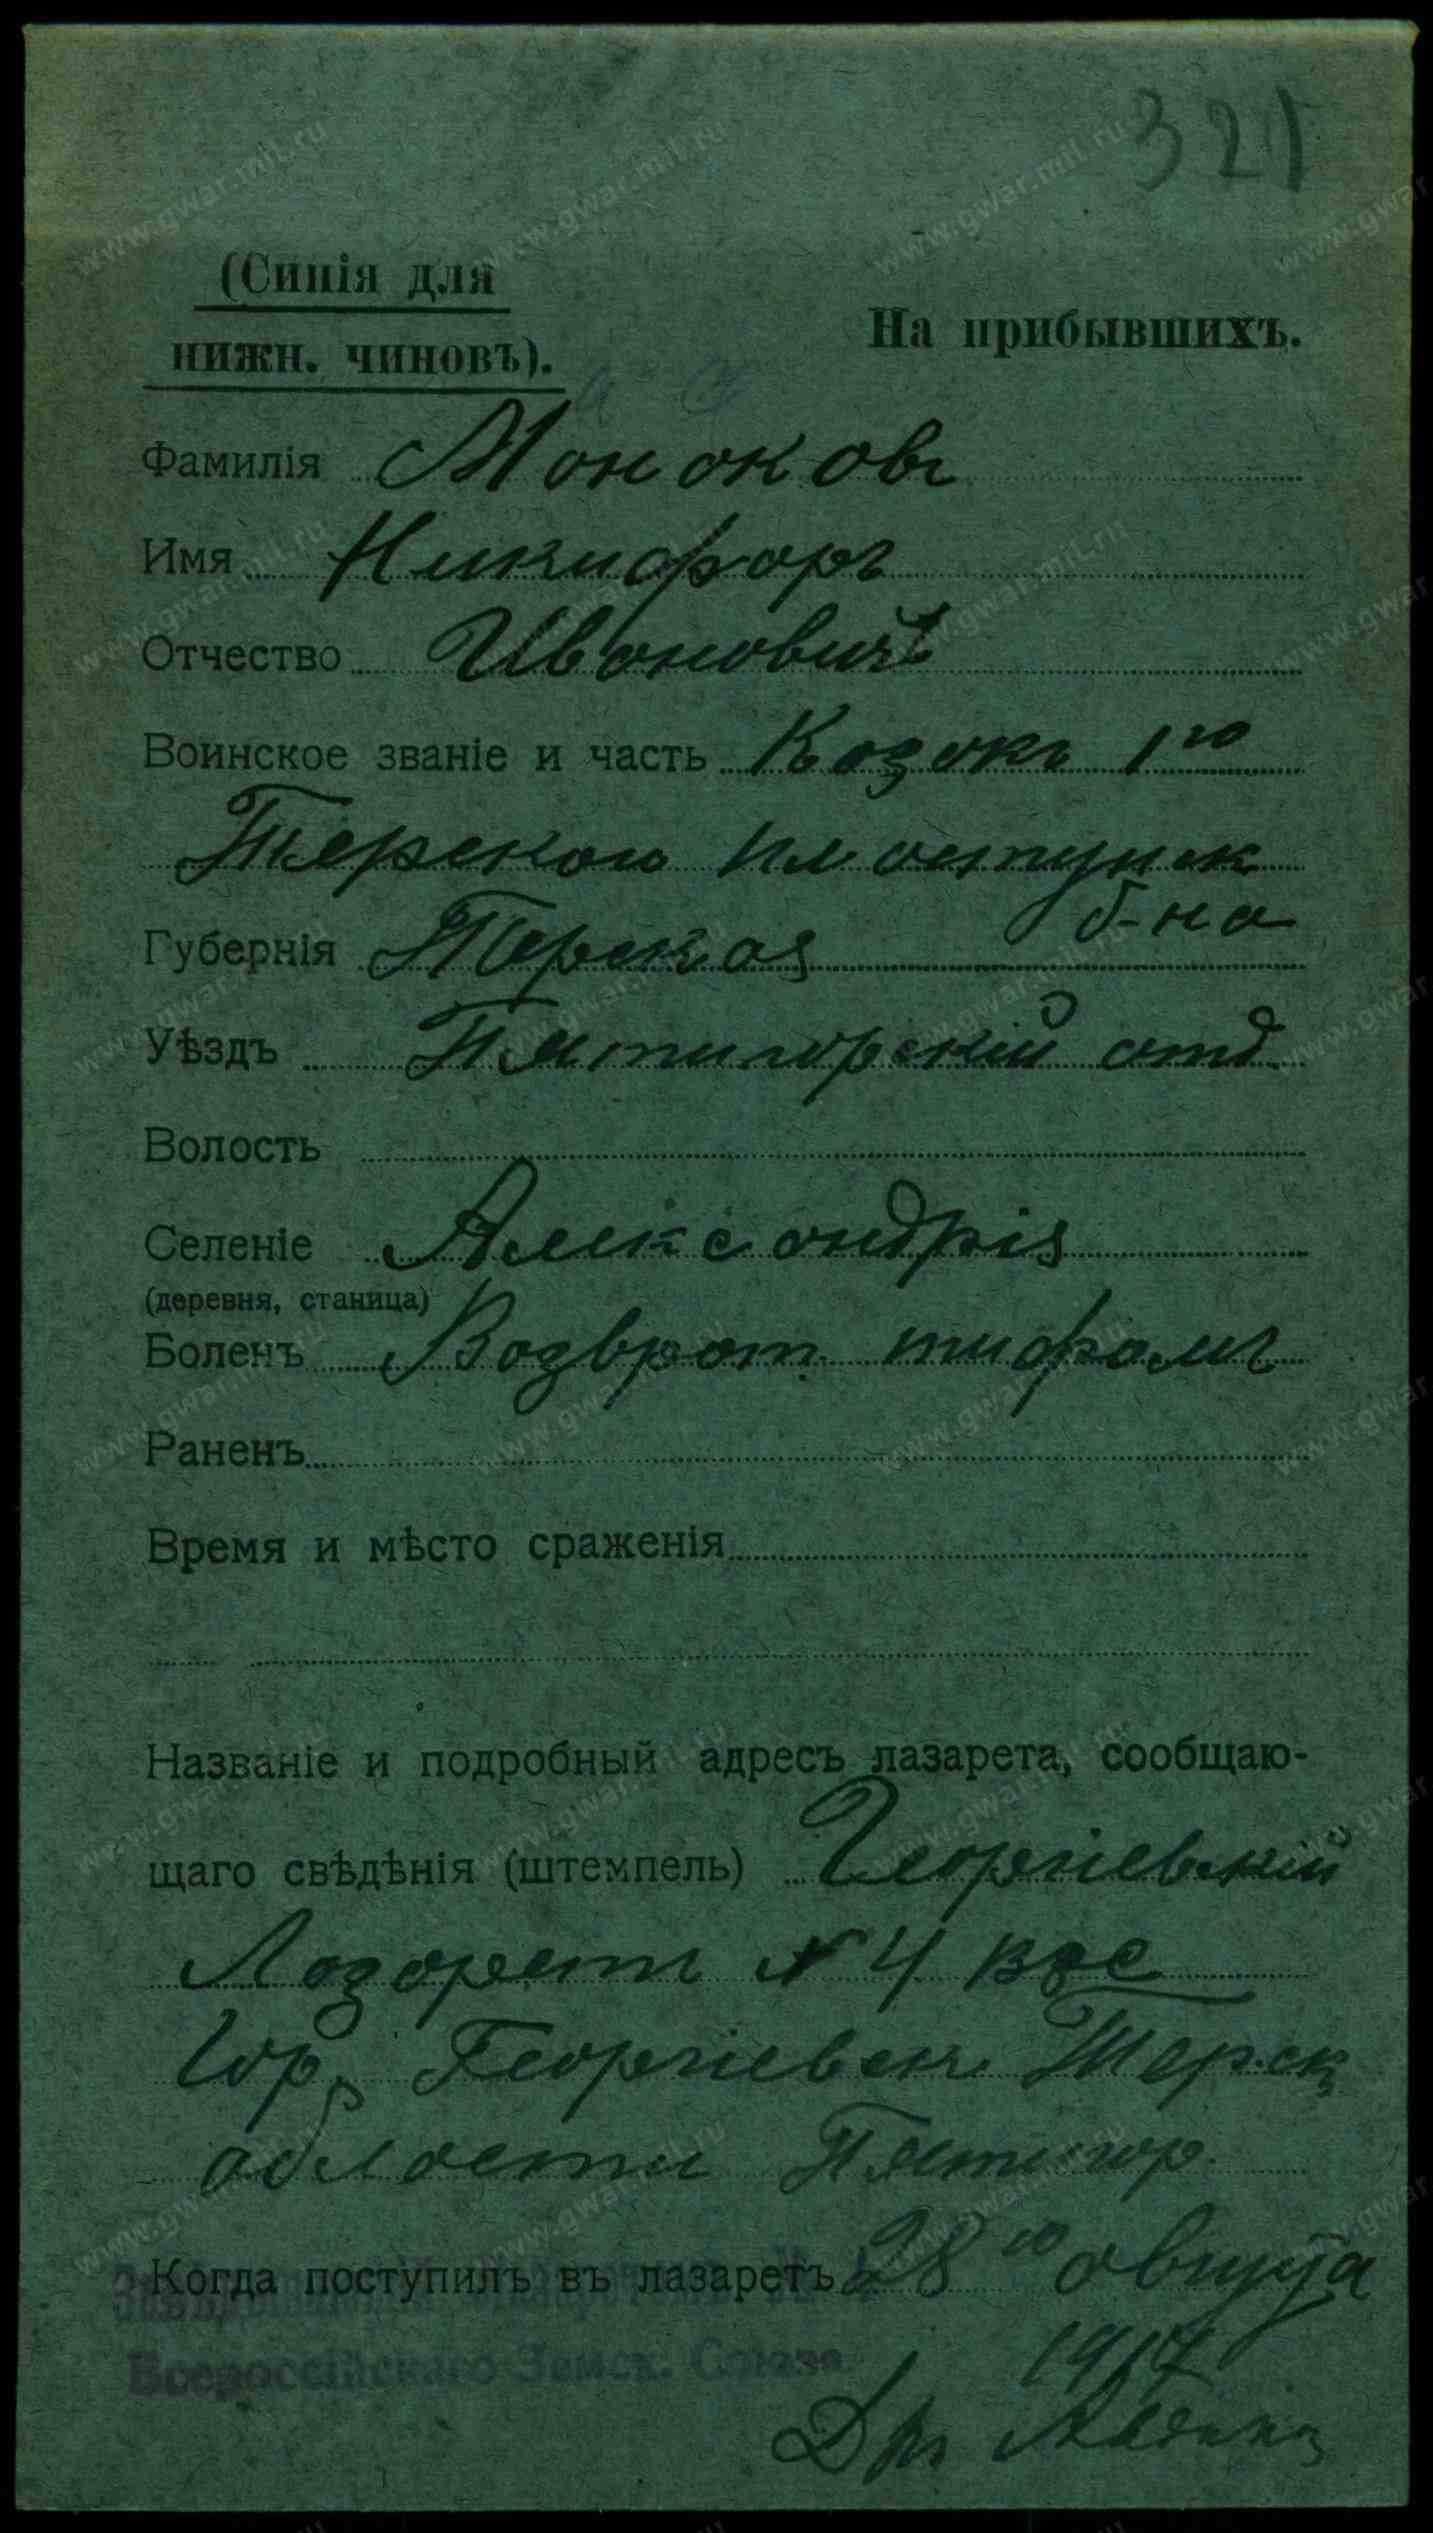 321
(Синія для
нижн. чиновъ).
На прибывшихъ.
Фамилія Маноковъ
Имя Никифоръ
Отчество Ивановичъ
Воинское званіе и часть Козакъ 1го
Терского пластунск
б-на
Губернія Терская
Уѣздъ Пятигорскій отд.
Волость
Селеніе Александрія
(деревня, станица)
Боленъ Возврат. тифомъ
Раненъ
Время и мѣсто сраженія
Названіе и подробный адресъ лазарета, сообщаю-
щаго свѣдѣнія (штемпель) Георгіевскій
Лазаретъ №4 ВЗС
гор. Георгіевск Терск
области Пятигор.
Когда поступилъ въ лазаретъ 28го августа
1917
Всероссійскаго Земск. Союза
Др